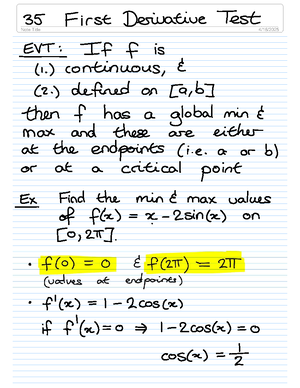 35 First Derivative Test
Note Title
EVT: If f is
(1.) continuous, &
(2.) defined on [a,b]
then f has a global min &
max and these are either
at the endpoints (i.e. a or b)
or at a critical point
Ex Find the min & max values
of f(x) = x - 2sin(x) on
[0, 2π].
• f(0) = 0 & f(2π) = 2π
(values at endpoints)
• f'(x) = 1 - 2cos(x)
if f'(x) = 0 ⇒ 1 - 2cos(x) = 0
cos(x) = 1/2